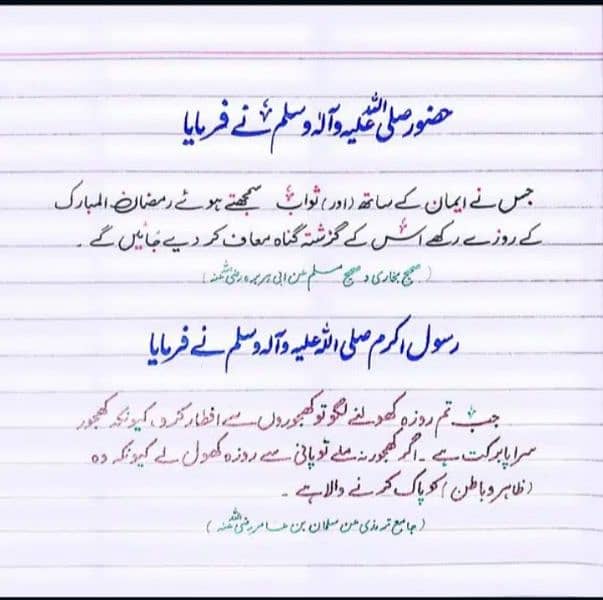 حضور صلی اللہ علیہ وآلہ وسلم نے فرمایا
جس نے ایمان کے ساتھ (اور) ثواب سمجھتے ہوئے رمضان المبارک
کے روزے رکھے اس کے گزشتہ گناہ معاف کر دیے جائیں گے۔
(صحیح بخاری و صحیح مسلم عن ابی ہریرہ رضی اللہ عنہ)
رسول اکرم صلی اللہ علیہ وآلہ وسلم نے فرمایا
جب تم روزہ کھولنے لگو تو کھجوروں سے افطار کرو، کیونکہ کھجور
سراپا برکت ہے۔ اگر کھجور نہ ملے تو پانی سے روزہ کھول لے کیونکہ وہ
(ظاہر و باطن) کو پاک کرنے والا ہے۔
(جامع ترمذی عن سلمان بن عامر رضی اللہ عنہ)